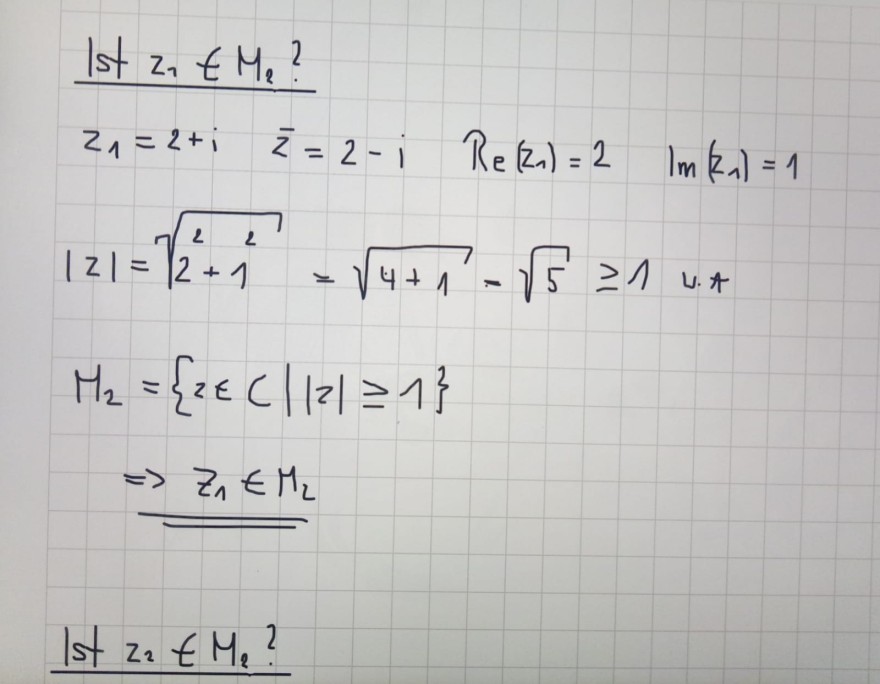 Ist z₁ ∈ M₂?
z₁ = 2 + i   z̄ = 2 - i   Re(z₁) = 2   Im(z₁) = 1
|z| = √(2² + 1²) = √(4 + 1) = √5 ≥ 1
M₂ = {z ∈ C | |z| ≥ 1}
=> z₁ ∈ M₂
Ist z₂ ∈ M₂?